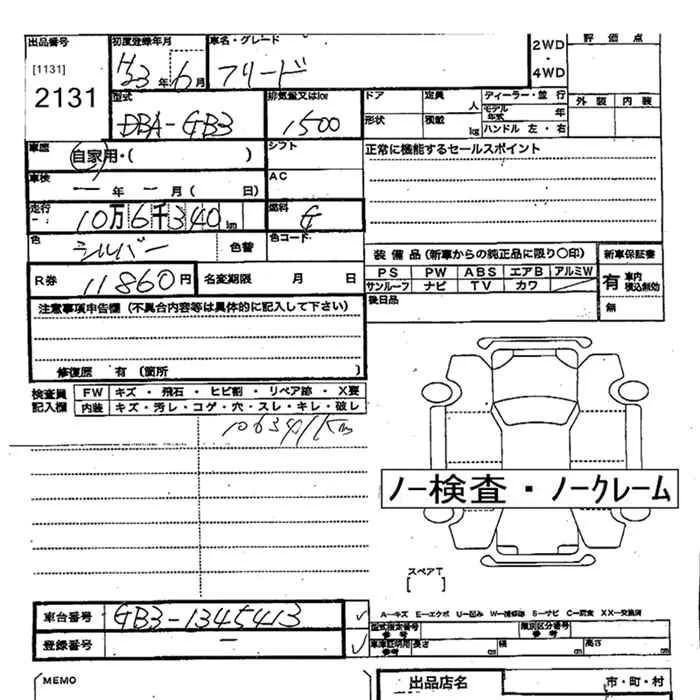 出品番号 初度登録年月 車名・グレード 2WD・4WD 評価点
[1131] H23年6月 フリード
2131
型式 排気量又はlor ドア 定員 人 ディーラー・並行 外装 内装
DBA-GB3 1500 形状 積載 kg モデル年式 年
ハンドル 左・右
車歴 自家用・( ) シフト 正常に機能するセールスポイント
車検 ー年ー月( 日) AC
走行 10万6千340km 燃料 G
色 シルバー 色替 色コード
装備品(新車からの純正品に限り〇印) 新車保証書
R券 11860円 名変期限 月 日 PS PW ABS エアB アルミW 有 車内積込無効
サンルーフ ナビ TV カワ
後日品 無
注意事項申告欄(不具合内容等は具体的に記入して下さい)
修復歴 有(箇所 )
検査員記入欄 FW キズ・飛石・ヒビ割・リペア跡・X要
内装 キズ・汚レ・コゲ・穴・スレ・キレ・破し
106341Km
ノー検査・ノークレーム
スペアT
[ ]
車台番号 GB3-1345413 ✓
A-キズ E-エクボ U-凹み W-補修跡 S-サビ C-腐食 XX-交換済
型式指定番号 参考 類別区分番号 参考
登録番号 ー ✓ 車庫証明用 参考 長さ cm 幅 cm 高さ cm
MEMO 出品店名 市・町・村